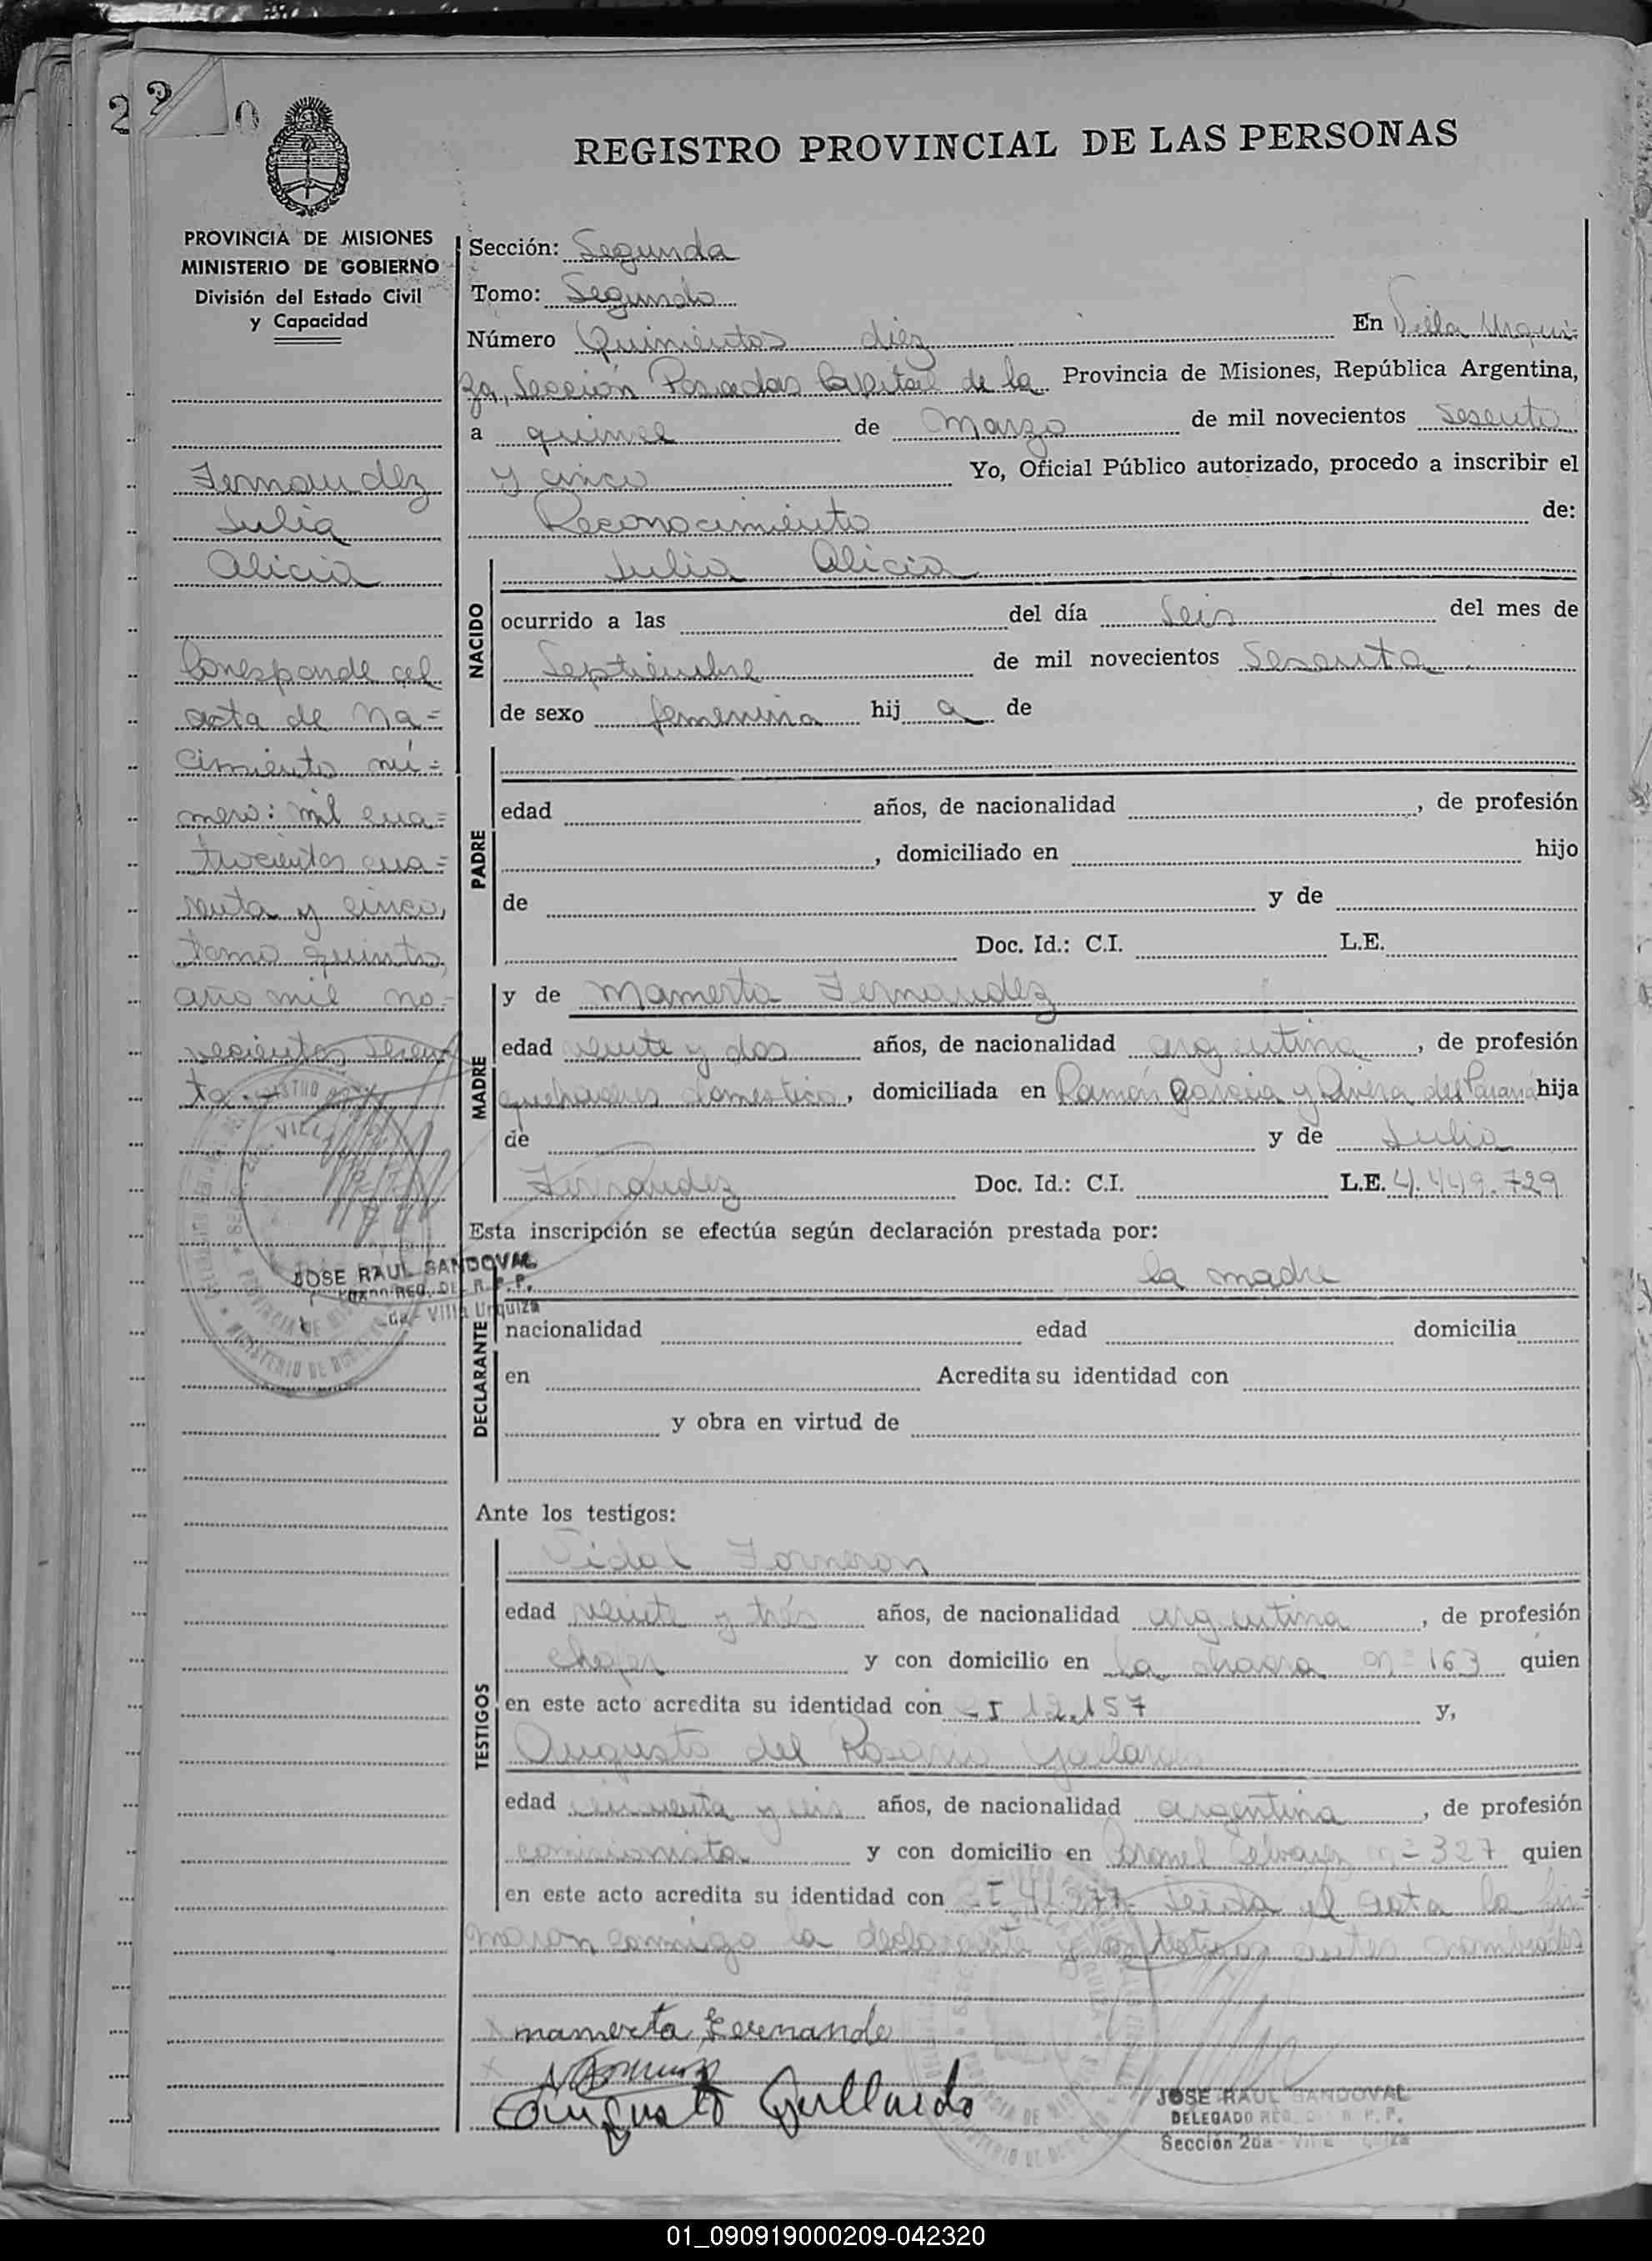 REGISTRO PROVINCIAL DE LAS PERSONAS
PROVINCIA DE MISIONES
MINISTERIO DE GOBIERNO
División del Estado Civil
y Capacidad
Fernandez
Julia
Alicia
Corresponde al
acta de na=
cimiento nú=
mero: mil cua=
trocientos cua=
renta y cinco,
tomo quinto,
año mil no=
vecientos sesen
ta.-
JOSE RAUL SANDOVAL
Sección: Segunda
Tomo: Segundo
Número Quinientos diez En Villa Urqui=
za, Sección Posadas Capital de la Provincia de Misiones, República Argentina,
a quince de Marzo de mil novecientos sesenta
y cinco Yo, Oficial Público autorizado, procedo a inscribir el
Reconocimiento de:
NACIDO
Julia Alicia
ocurrido a las del día Seis del mes de
Septiembre de mil novecientos Sesenta
de sexo femenina hij a de
PADRE
edad años, de nacionalidad , de profesión
, domiciliado en hijo
de y de
Doc. Id.: C.I. L.E.
MADRE
y de Mamerta Fernandez
edad veinte y dos años, de nacionalidad argentina , de profesión
quehaceres domestico , domiciliada en Ramón Garcia y Rivera del Paraná hija
de y de Julia
Fernandez Doc. Id.: C.I. L.E. 4.449.729
Esta inscripción se efectúa según declaración prestada por:
DECLARANTE
la madre
nacionalidad edad domicilia
en Acredita su identidad con
y obra en virtud de
Ante los testigos:
TESTIGOS
Vidal Forneron
edad veinte y trés años, de nacionalidad argentina , de profesión
chofer y con domicilio en la chacra nº 163 quien
en este acto acredita su identidad con CI 12.157 y,
Augusto del Rosario Gallardo
edad cincuenta y seis años, de nacionalidad argentina , de profesión
comicionista y con domicilio en nº 327 quien
en este acto acredita su identidad con CI 41.377 Leida el acta la fir=
maron conmigo la declarante y los testigos antes nombrados
mamerta Fernande
Augusto Gallardo
JOSE RAUL SANDOVAL
DELEGADO REG. DEL R. P. P.
Sección 2da - Villa Urquiza
01_090919000209-042320